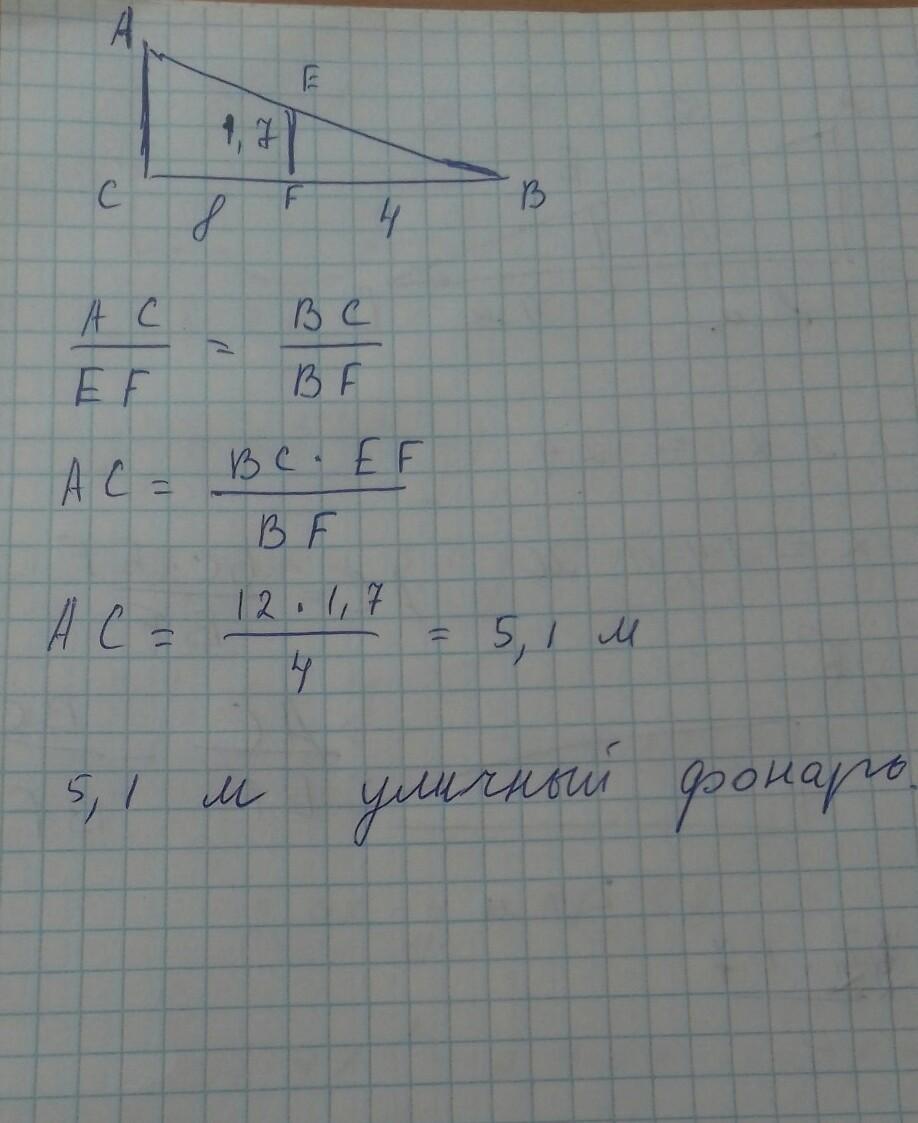 A
E
1,7
C F B
8 4
AC / EF = BC / BF
AC = BC · EF / BF
AC = 12 · 1,7 / 4 = 5,1 м
5,1 м уличный фонарь.